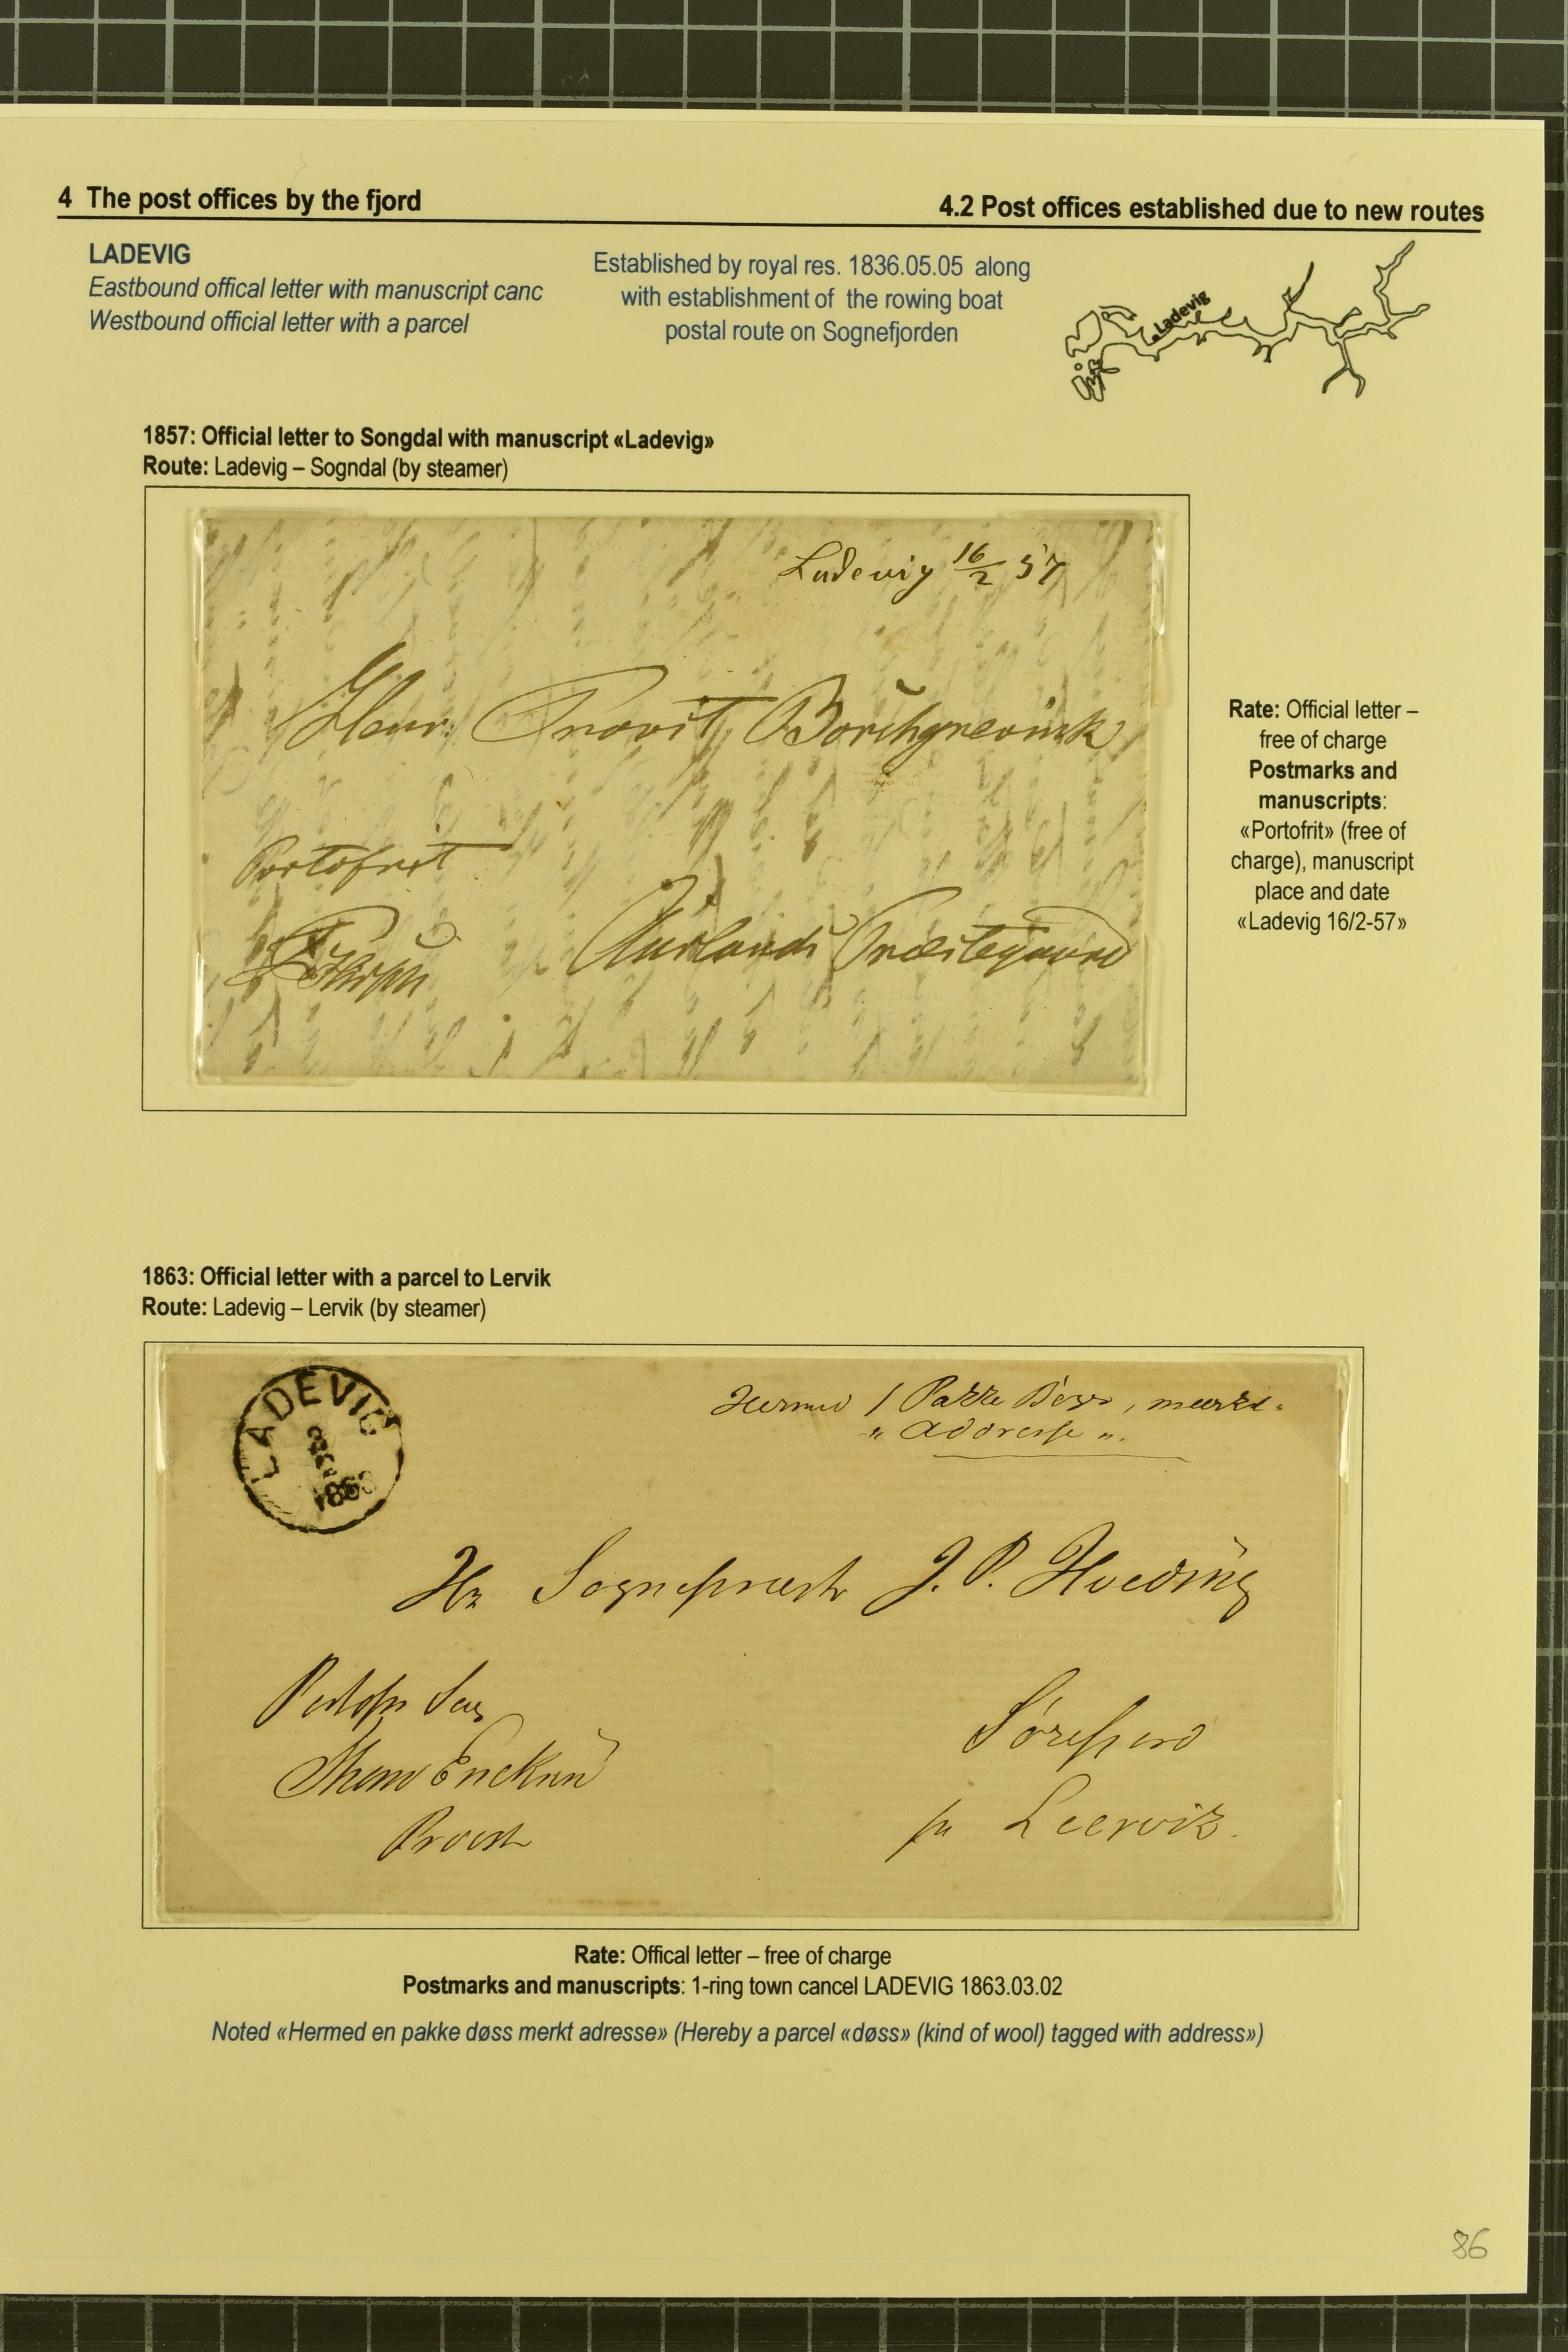 4 The post offices by the fjord
4.2 Post offices established due to new routes
LADEVIG
Eastbound offical letter with manuscript canc
Westbound official letter with a parcel
Established by royal res. 1836.05.05 along
with establishment of the rowing boat
postal route on Sognefjorden
Ladevig
1857: Official letter to Songdal with manuscript «Ladevig»
Route: Ladevig – Sogndal (by steamer)
Ladevig 16/2 57
Herr Provst Borchgrevink
Portofrit
Aurlands Præstegaard
Rate: Official letter –
free of charge
Postmarks and
manuscripts:
«Portofrit» (free of
charge), manuscript
place and date
«Ladevig 16/2-57»
1863: Official letter with a parcel to Lervik
Route: Ladevig – Lervik (by steamer)
LADEVIG
1863
Hermed 1 Pakke Døss, mærkt.
"Addresse".
Hr Sognepræst J. P. Hveding
Provst
pr Leervik.
Rate: Offical letter – free of charge
Postmarks and manuscripts: 1-ring town cancel LADEVIG 1863.03.02
Noted «Hermed en pakke døss merkt adresse» (Hereby a parcel «døss» (kind of wool) tagged with address»)
86